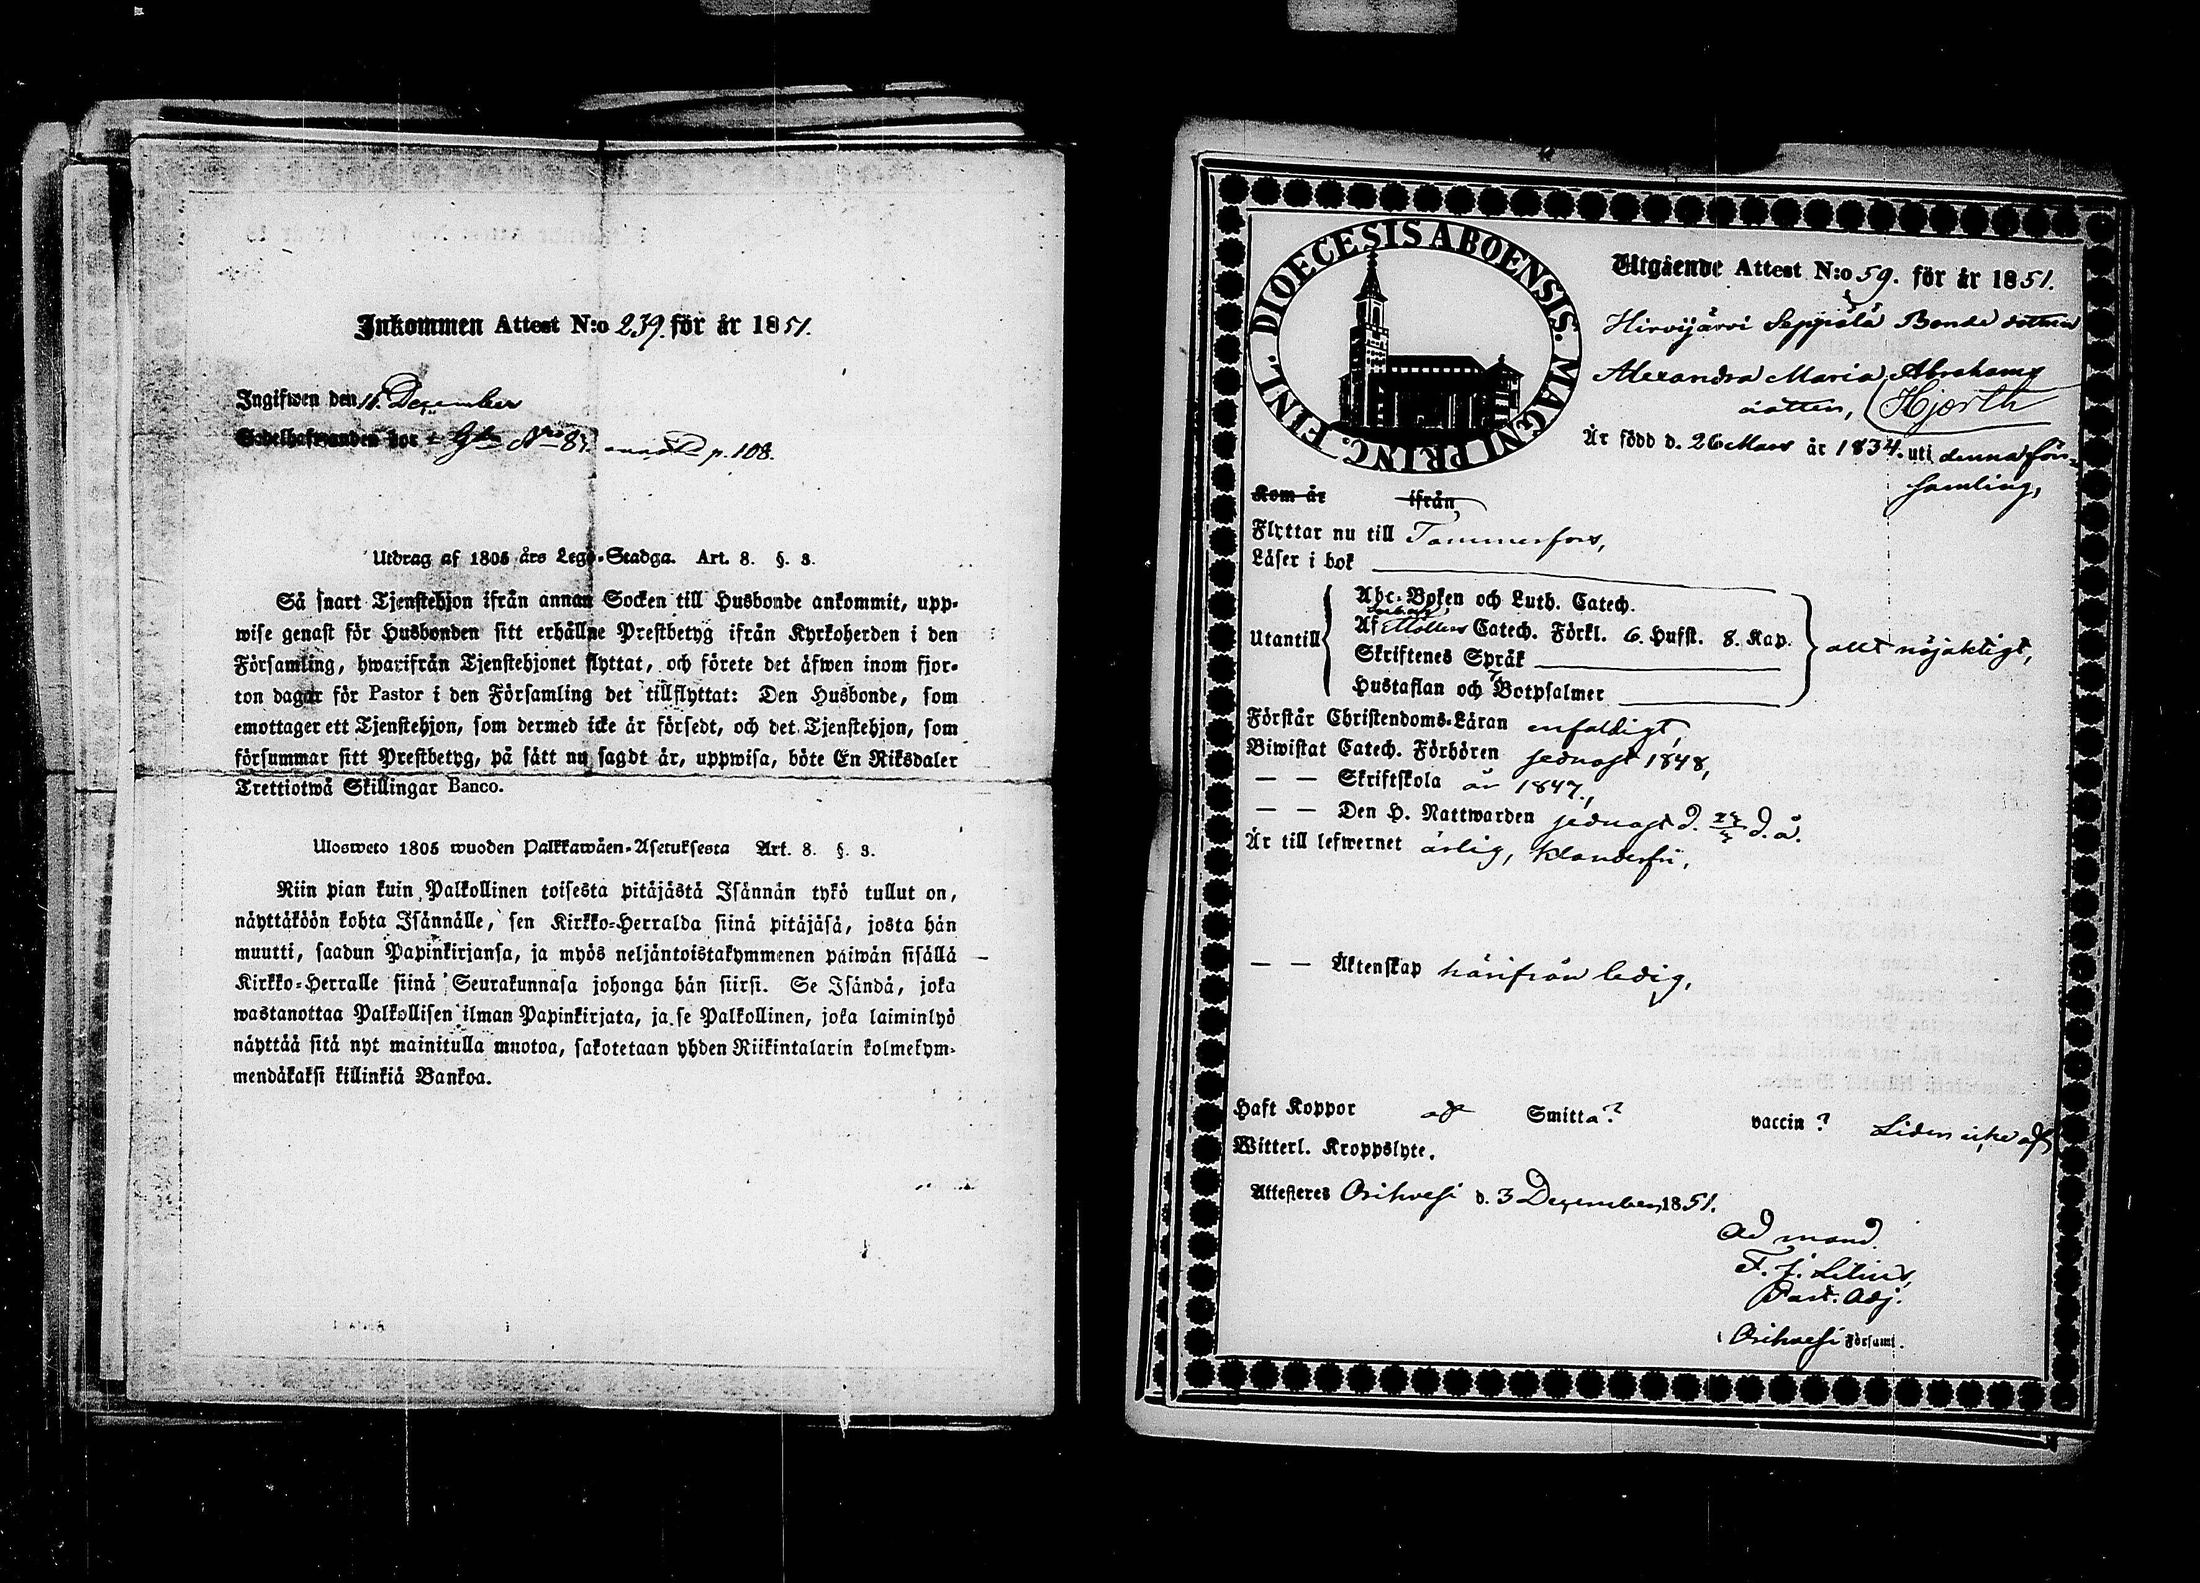 Inkommen Attest N:o 239. för år 1851.
Ingifwen den 11 December
Sedelhafwanden bor Gln Nro 87. p. 108.
Utdrag af 1805 års Lego-Stadga. Art. 8. §. 3.
Så snart Tjenstehjon ifrån annan Socken till Husbonde ankommit, upp-
wise genast för Husbonden sitt erhållne Prestbetyg ifrån Kyrkoherden i den
Församling, hwarifrån Tjenstehjonet flyttat, och förete det äfwen inom fjor-
ton dagar för Pastor i den Församling det tillflyttat: Den Husbonde, som
emottager ett Tjenstehjon, som dermed icke är försedt, och det Tjenstehjon, som
försummar sitt Prestbetyg, på sätt nu sagdt är, uppwisa, böte En Riksdaler
Trettiotwå Skillingar Banco.
Ulosweto 1805 wuoden Palkkawäen-Asetuksesta Art. 8. §. 3.
Niin pian kuin Palkollinen toisesta pitäjästä Isännän tykö tullut on,
näyttäköön kohta Isännälle, sen Kirkko-Herralda siinä pitäjäsä, josta hän
muutti, saadun Papinkirjansa, ja myös neljäntoistakymmenen päiwän sisällä
Kirkko-Herralle siinä Seurakunnasa johonga hän siirsi. Se Isändä, joka
wastanottaa Palkollisen ilman Papinkirjata, ja se Palkollinen, joka laiminlyö
näyttää sitä nyt mainitulla muotoa, sakotetaan yhden Riikintalarin kolmekym-
mendäkaksi killinkiä Bankoa.
DIOECESIS ABOENSIS. MAGNI PRINC. FINL.
Utgående Attest N:o 59. för år 1851.
Hirvijärvi Seppälä Bonde dottren
Alexandra Maria Abrahams
dotter, (Hjorth
Är född d. 26 Mars år 1834. uti denna för-
samling,
Kom år ifrån,
Flyttar nu till Tammerfors,
Läser i bok
Utantill
Abc-Boken och Luth. Catech.
Af Möllers Catech. Förkl. 6. Hufst. 8. Kap.
Skriftenes Språk
Hustaflan och 7 Botpsalmer
allt nöjaktigt,
Förstår Christendoms-Läran enfaldigt,
Biwistat Catech. Förhören sednast 1848,
— — Skriftskola år 1847.,
— — Den H. Nattwarden sednast d. d. å.
Är till lefwernet ärlig, klanderfri,
— — Äktenskap härifrån ledig,
Haft Koppor Smitta? vaccin? Liden icke af
Witterl. Kroppslyte.
Attesteres Orihvesi d. 3 December 1851.
Ad mand.
F. J. Lilius,
Past. Adj.
i Orihvesi Församl.